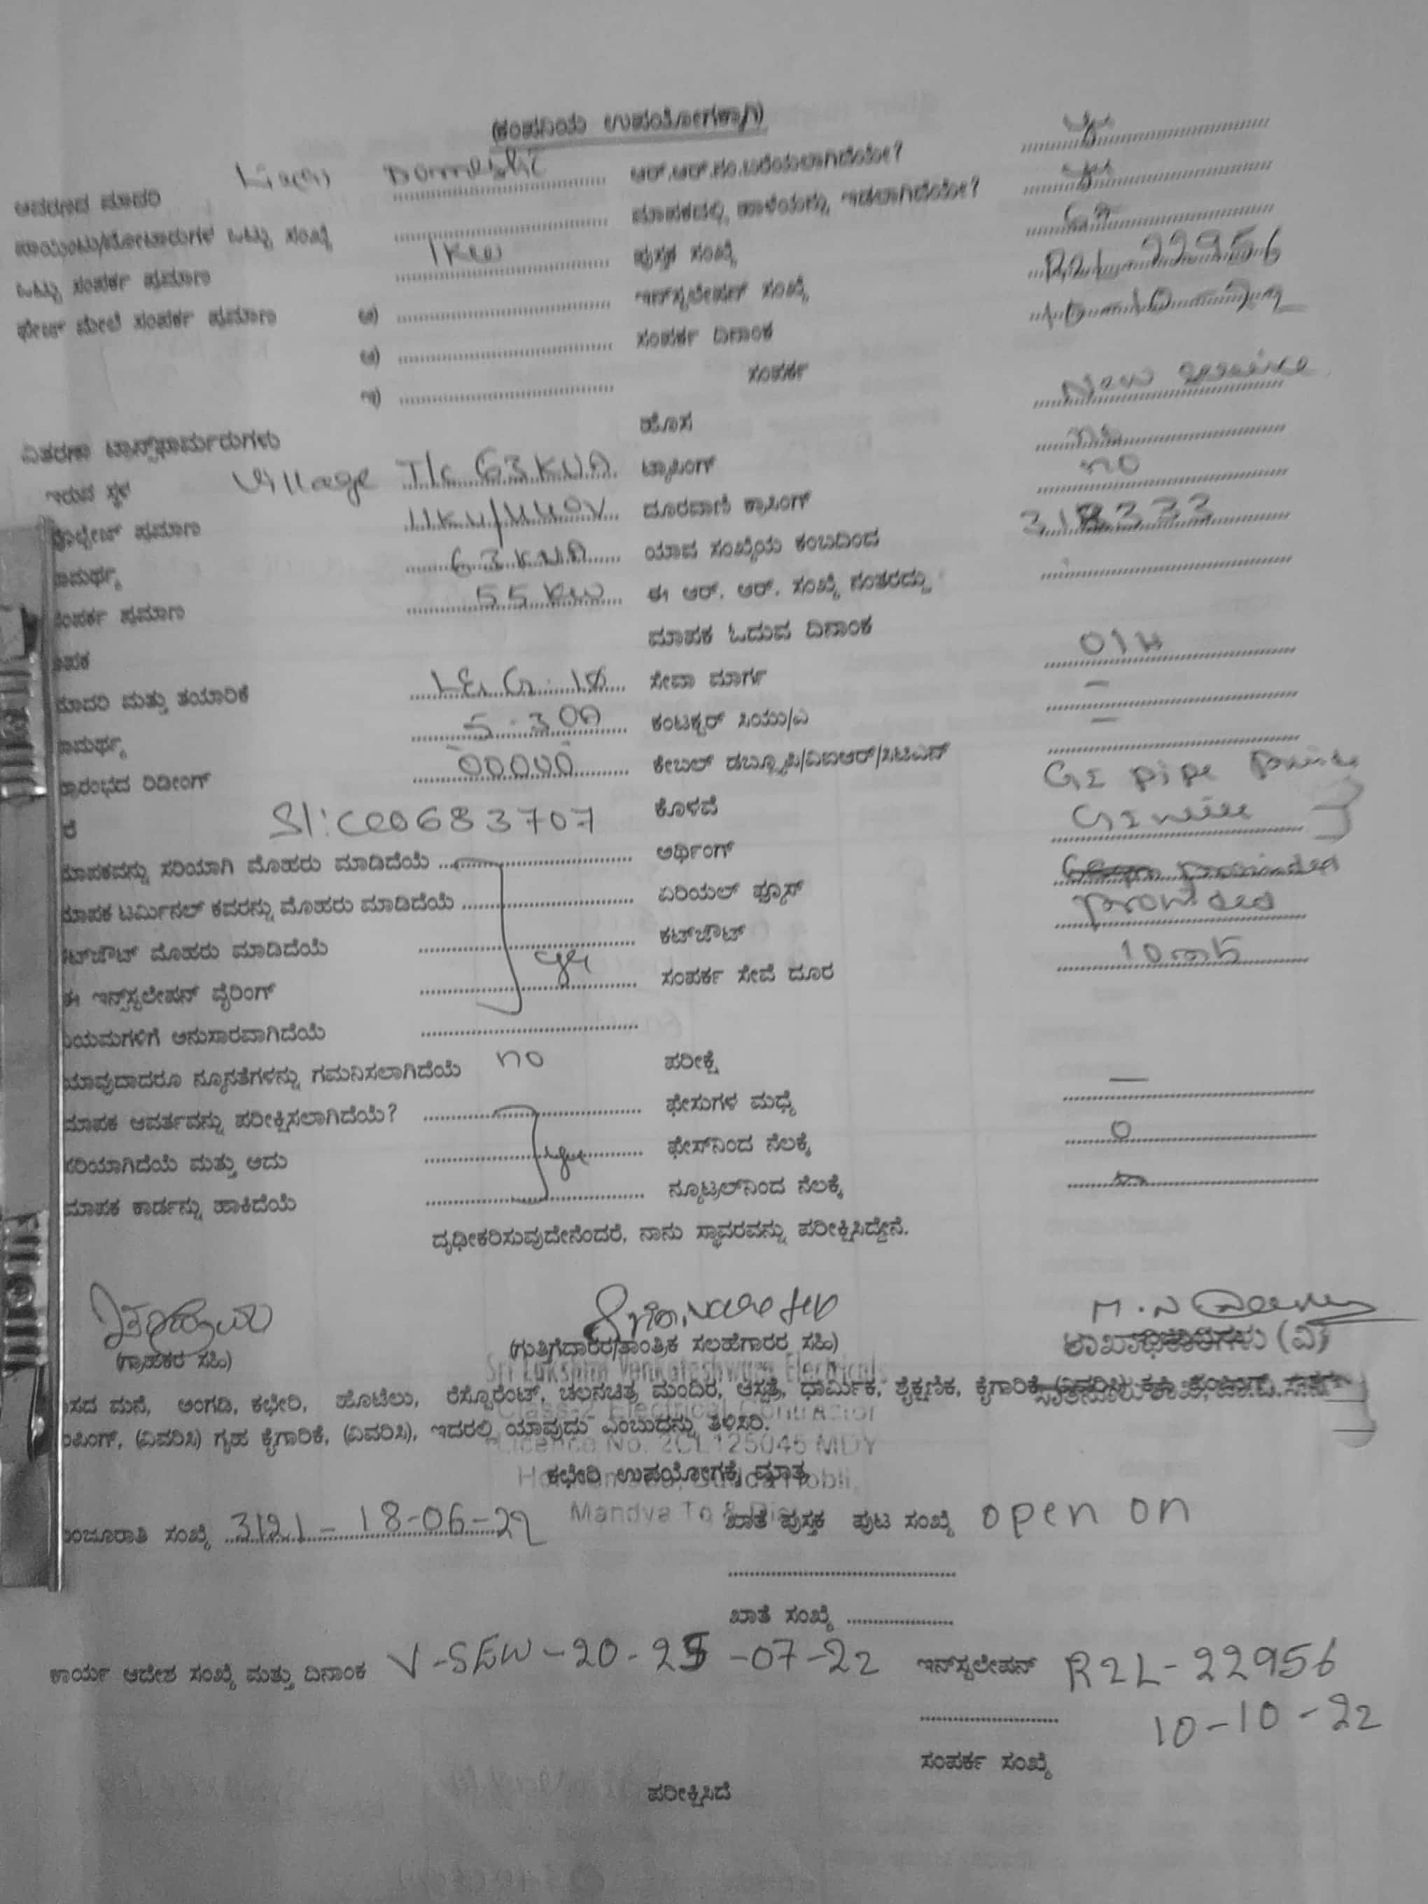 (ಕಂಪನಿಯ ಉಪಯೋಗಕ್ಕಾಗಿ)
ಆವರಣದ ಮಾದರಿ Domestic ಆರ್.ಆರ್.ನಂ.ಬರೆಯಲಾಗಿದೆಯೇ?
ಪಾಯಿಂಟು/ಮೋಟಾರುಗಳ ಒಟ್ಟು ಸಂಖ್ಯೆ ಮಾಪಕದಲ್ಲಿ ಹಾಳೆಯನ್ನು ಇಡಲಾಗಿದೆಯೇ?
ಒಟ್ಟು ಸಂಪರ್ಕ ಪ್ರಮಾಣ 1KW ಪುಸ್ತಕ ಸಂಖ್ಯೆ
ಫೇಜ್ ಮೇಲೆ ಸಂಪರ್ಕ ಪ್ರಮಾಣ ಅ) ಇನ್‌ಸ್ಟಲೇಷನ್ ಸಂಖ್ಯೆ R2L-22956
ಆ) ಸಂಪರ್ಕ ದಿನಾಂಕ 10-10-22
ಇ) ಸಂಪರ್ಕ
ವಿತರಣಾ ಟ್ರಾನ್ಸ್‌ಫಾರ್ಮರುಗಳು ಹೊಸ New service
ಇರುವ ಸ್ಥಳ Village T/c 63KVA ಕ್ರಾಸಿಂಗ್ no
ವೋಲ್ಟೇಜ್ ಪ್ರಮಾಣ 11KV/440V ದೂರವಾಣಿ ಕ್ರಾಸಿಂಗ್ no
ಸಾಮರ್ಥ್ಯ 63KVA ಯಾವ ಸಂಖ್ಯೆಯ ಕಂಬದಿಂದ
ಸಂಪರ್ಕ ಪ್ರಮಾಣ 55KW ಈ ಆರ್. ಆರ್. ಸಂಖ್ಯೆ ನಂತರದ್ದು
ಮಾಪಕ ಮಾಪಕ ಓದುವ ದಿನಾಂಕ
ಮಾದರಿ ಮತ್ತು ತಯಾರಿಕೆ ಸೇವಾ ಮಾರ್ಗ
ಸಾಮರ್ಥ್ಯ 5-30A ಕಂಡಕ್ಟರ್ ಸಿಯು/ಎ –
ಪ್ರಾರಂಭದ ರಿಡೀಂಗ್ 00000 ಕೇಬಲ್ ಡಬ್ಲ್ಯೂಪಿ/ವಿಐಆರ್/ಸಿಟಿಎಸ್ –
Sl: 0683707 ಕೊಳವೆ GI pipe
ಮಾಪಕವನ್ನು ಸರಿಯಾಗಿ ಮೊಹರು ಮಾಡಿದೆಯೆ ಅರ್ಥಿಂಗ್ GI wire
ಮಾಪಕ ಟರ್ಮಿನಲ್ ಕವರನ್ನು ಮೊಹರು ಮಾಡಿದೆಯೆ ಏರಿಯಲ್ ಫ್ಯೂಸ್ provided
ಕಟ್‌ಔಟ್ ಮೊಹರು ಮಾಡಿದೆಯೆ ಕಟ್‌ಔಟ್ provided
ಈ ಇನ್‌ಸ್ಟಲೇಷನ್ ವೈರಿಂಗ್ yes ಸಂಪರ್ಕ ಸೇವೆ ದೂರ 10mts
ನಿಯಮಗಳಿಗೆ ಅನುಸಾರವಾಗಿದೆಯೆ
ಯಾವುದಾದರೂ ನ್ಯೂನತೆಗಳನ್ನು ಗಮನಿಸಲಾಗಿದೆಯೆ no ಪರೀಕ್ಷೆ
ಮಾಪಕ ಆವರ್ತವನ್ನು ಪರೀಕ್ಷಿಸಲಾಗಿದೆಯೆ? ಫೇಸುಗಳ ಮಧ್ಯೆ —
ಸರಿಯಾಗಿದೆಯೆ ಮತ್ತು ಅದು yes ಫೇಸ್‌ನಿಂದ ನೆಲಕ್ಕೆ 0
ಮಾಪಕ ಕಾರ್ಡನ್ನು ಹಾಕಿದೆಯೆ ನ್ಯೂಟ್ರಲ್‌ನಿಂದ ನೆಲಕ್ಕೆ
ದೃಢೀಕರಿಸುವುದೇನೆಂದರೆ, ನಾನು ಸ್ಥಾವರವನ್ನು ಪರೀಕ್ಷಿಸಿದ್ದೇನೆ.
(ಗ್ರಾಹಕರ ಸಹಿ) (ಗುತ್ತಿಗೆದಾರರ/ತಾಂತ್ರಿಕ ಸಲಹೆಗಾರರ ಸಹಿ) ಶಾಖಾಧಿಕಾರಿಗಳು (ವಿ)
Sri Lakshmi Venkateshwara Electricals
ವಾಸದ ಮನೆ, ಅಂಗಡಿ, ಕಛೇರಿ, ಹೊಟೆಲು, ರೆಸ್ಟೊರೆಂಟ್, ಚಲನಚಿತ್ರ ಮಂದಿರ, ಆಸ್ಪತ್ರೆ, ಧಾರ್ಮಿಕ, ಶೈಕ್ಷಣಿಕ, ಕೈಗಾರಿಕೆ, (ವಿವರಿಸಿ)
Class-2 Electrical Contractor
ಪಂಪಿಂಗ್, (ವಿವರಿಸಿ) ಗೃಹ ಕೈಗಾರಿಕೆ, (ವಿವರಿಸಿ), ಇದರಲ್ಲಿ ಯಾವುದು ಎಂಬುದನ್ನು ತಿಳಿಸಿರಿ.
Licence No. 2CL125045 MDY
ಕಛೇರಿ ಉಪಯೋಗಕ್ಕೆ ಮಾತ್ರ
Hobli,
Mandya Tq & Dist
ಮಂಜೂರಾತಿ ಸಂಖ್ಯೆ 3121-18-06-22 ಖಾತೆ ಪುಸ್ತಕ ಪುಟ ಸಂಖ್ಯೆ open on
ಖಾತೆ ಸಂಖ್ಯೆ
ಕಾರ್ಯ ಆದೇಶ ಸಂಖ್ಯೆ ಮತ್ತು ದಿನಾಂಕ V-SEW-20-25-07-22 ಇನ್‌ಸ್ಟಲೇಷನ್ R2L-22956
10-10-22
ಸಂಪರ್ಕ ಸಂಖ್ಯೆ
ಪರೀಕ್ಷಿಸಿದೆ